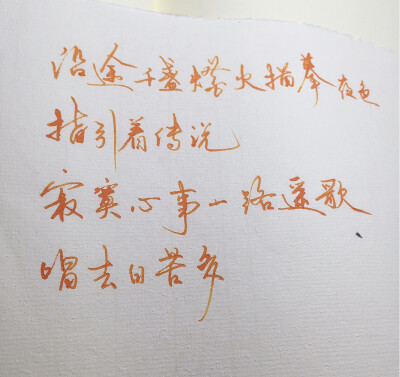 沿途千盏灯火描摹夜色
指引着传说
寂寞心事一路遥歌
唱去日苦多